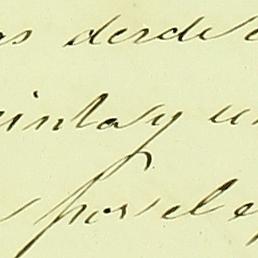 as desde
inta y un
por el e